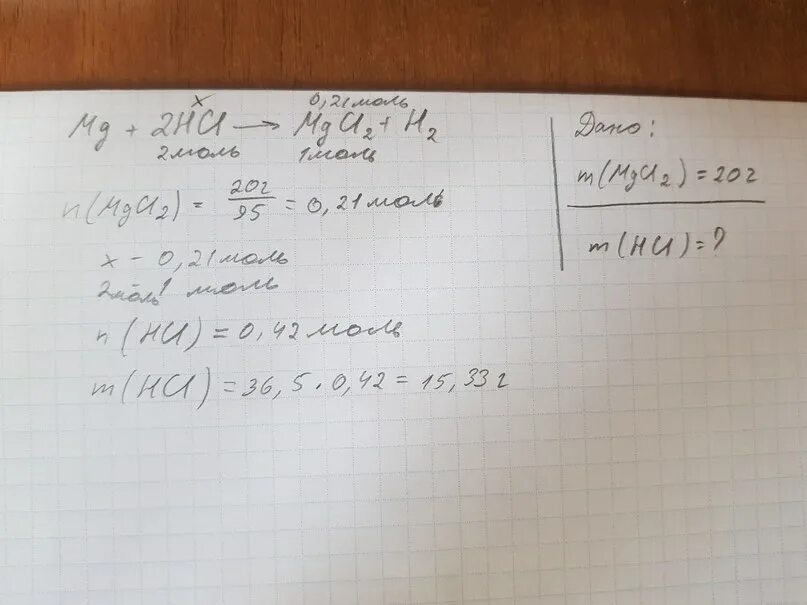 x 0,21моль
Mg + 2HCl → MgCl₂ + H₂
2моль 1моль
n(MgCl₂) = 20г/95 = 0,21моль
x – 0,21моль
2моль 1 моль
n(HCl) = 0,42моль
m(HCl) = 36,5 · 0,42 = 15,33г
Дано:
m(MgCl₂) = 20г
m(HCl) = ?